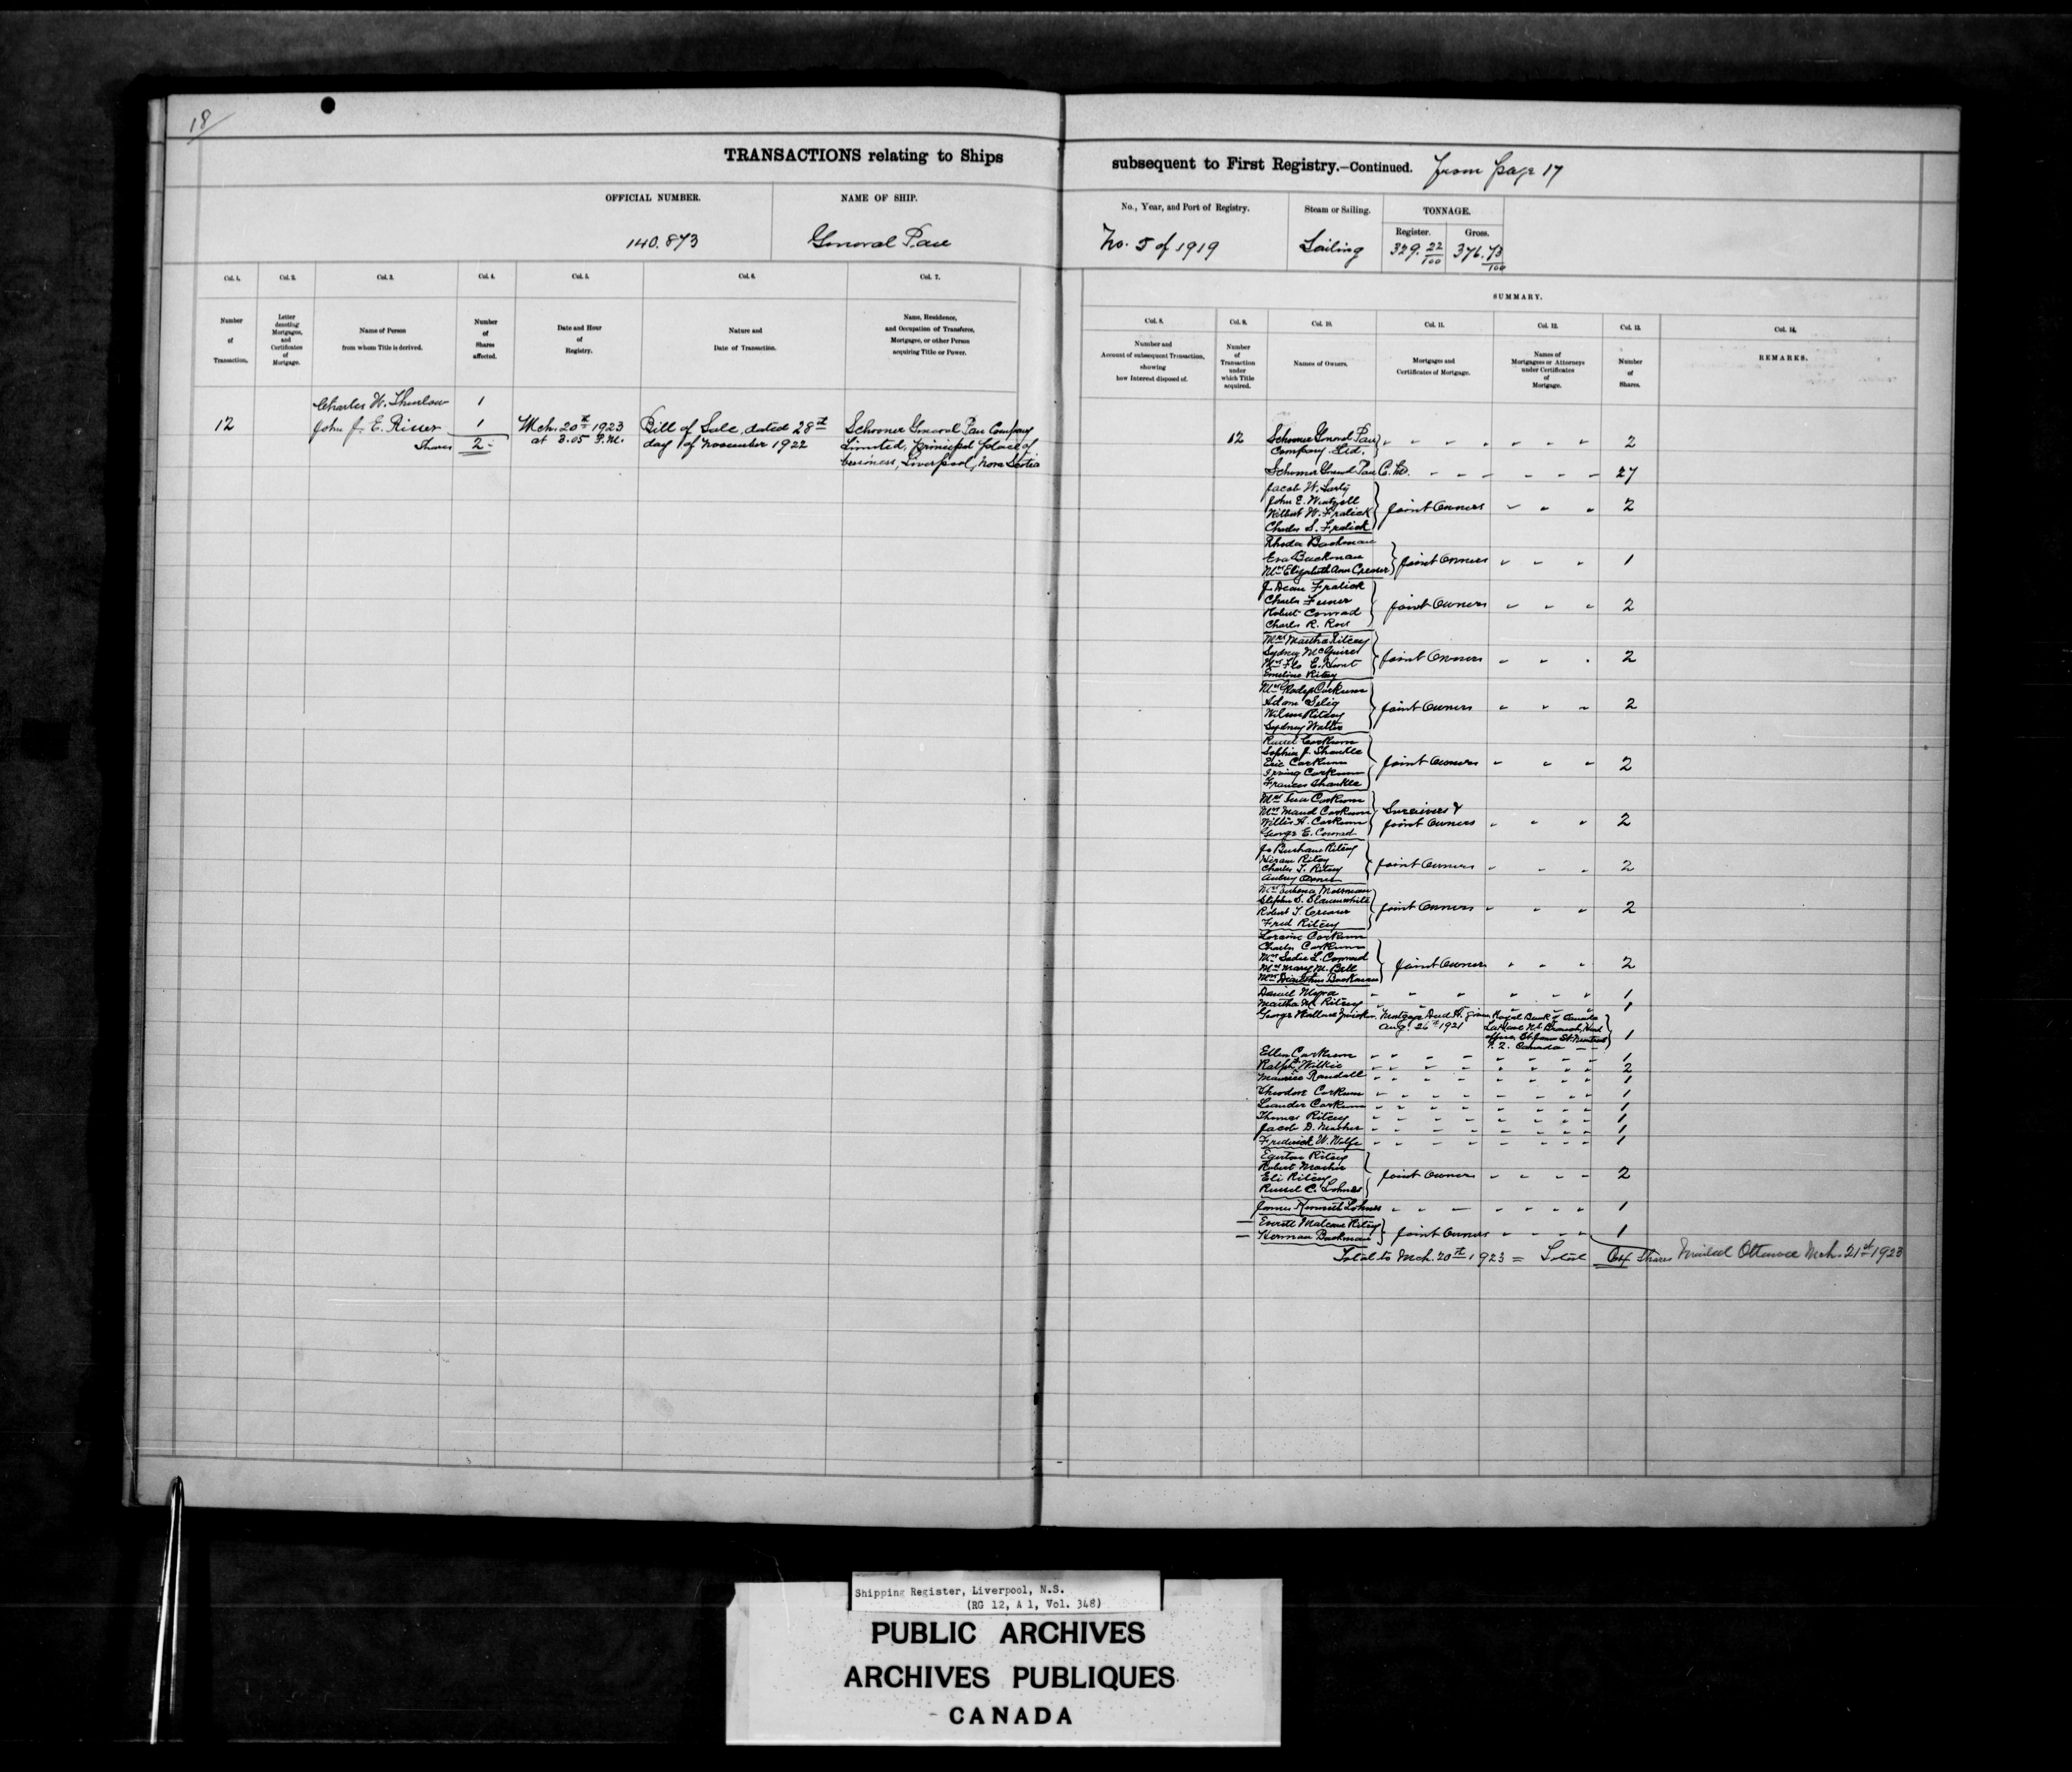 18
TRANSACTIONS relating to Ships
subsequent to First Registry.—Continued. from page 17
OFFICIAL NUMBER.
140.873
NAME OF SHIP.
General Pau
No., Year, and Port of Registry.
No. 5 of 1919
Steam or Sailing.
Sailing
TONNAGE.
Register.
329. 22/100
Gross.
376. 73/100
Col. 1.
Number
of
Transaction.
Col. 2.
Letter
denoting
Mortgages,
and
Certificates
of
Mortgage.
Col. 3.
Name of Person
from whom Title is derived.
Col. 4.
Number
of
Shares
affected.
Col. 5.
Date and Hour
of
Registry.
Col. 6.
Nature and
Date of Transaction.
Col. 7.
Name, Residence,
and Occupation of Transferee,
Mortgagee, or other Person
acquiring Title or Power.
SUMMARY.
Col. 8.
Number and
Account of subsequent Transaction,
showing
how Interest disposed of.
Col. 9.
Number
of
Transaction
under
which Title
acquired.
Col. 10.
Names of Owners.
Col. 11.
Mortgages and
Certificates of Mortgage.
Col. 12.
Names of
Mortgagees or Attorneys
under Certificates
of
Mortgage.
Col. 13.
Number
of
Shares.
Col. 14.
REMARKS.
Charles W. Thurlow 1
12 John J. E. Risser 1
Shares 2
Mch. 20th 1923
at 3.05 P.M.
Bill of Sale, dated 28th
day of November 1922
Schooner General Pau Company
Limited, principal place of
business, Liverpool, Nova Scotia
12 Schooner General Pau
Company Ltd. 2
Schooner General Pau Co. Ltd. 27
Jacob W.
John E. Wentzell
Wilbert W. Fralick Joint Owners 2
Charles S. Fralick
Rhoda Bachman
Eva Bachman Joint Owners 1
Mrs Elizabeth Ann Creaser
J. Dean Fralick
Charles
Robert Conrad Joint Owners 2
Charles R.
Mrs Martha Ritcey
Sydney McGuire
E. Hunt Joint Owners 2
Emeline Ritcey
Mrs Gladys Corkum
Adam Selig
Wilson Ritcey Joint Owners 2
Sydney Walters
Russel Corkum
Sophia J. Shankle
Eric Corkum Joint Owners 2
Irving Corkum
Frances Shankle
Mrs Corkum
Mrs Maud Corkum Survivors &
Willis A. Corkum Joint Owners 2
George E. Conrad
J. Burhans Ritcey
Hiram Ritcey
Charles T. Ritcey Joint Owners 2
Aubrey
Mosman
Stephen S. Slauenwhite
Robert T. Creaser Joint Owners 2
Fred Ritcey
Loraine Corkum
Charles Corkum
Mrs Sadie L. Conrad Joint Owners 2
Mrs Mary M. Bell
Mrs Bachman
Daniel Myra 1
Martha M. Ritcey 1
George Wallace Zwicker. Mortgage dated Aug. 26th 1921 Royal Bank of Canada
LaHave N.S. Branch, Head
office, St. James St. Montreal
P. Q. Canada 1
Ellen Corkum 1
Ralph Wilkie 2
Maurice Randall 1
Theodore Corkum 1
Leander Corkum 1
Thomas Ritcey 1
Jacob D. Mosher 1
Frederick W. Wolfe 1
Egerton Ritcey
Robert Mosher
Eli Ritcey Joint Owners 2
Russel C. Lohnes
James Kenneth Lohnes 1
Everett Malcolm Ritcey
Herman Bachman Joint Owners 1
Total to Mch. 20th 1923 = Total 64 Shares Mailed Ottawa Mch. 21st 1923
Shipping Register, Liverpool, N.S.
(RG 12, A 1, Vol. 348)
PUBLIC ARCHIVES
ARCHIVES PUBLIQUES
CANADA